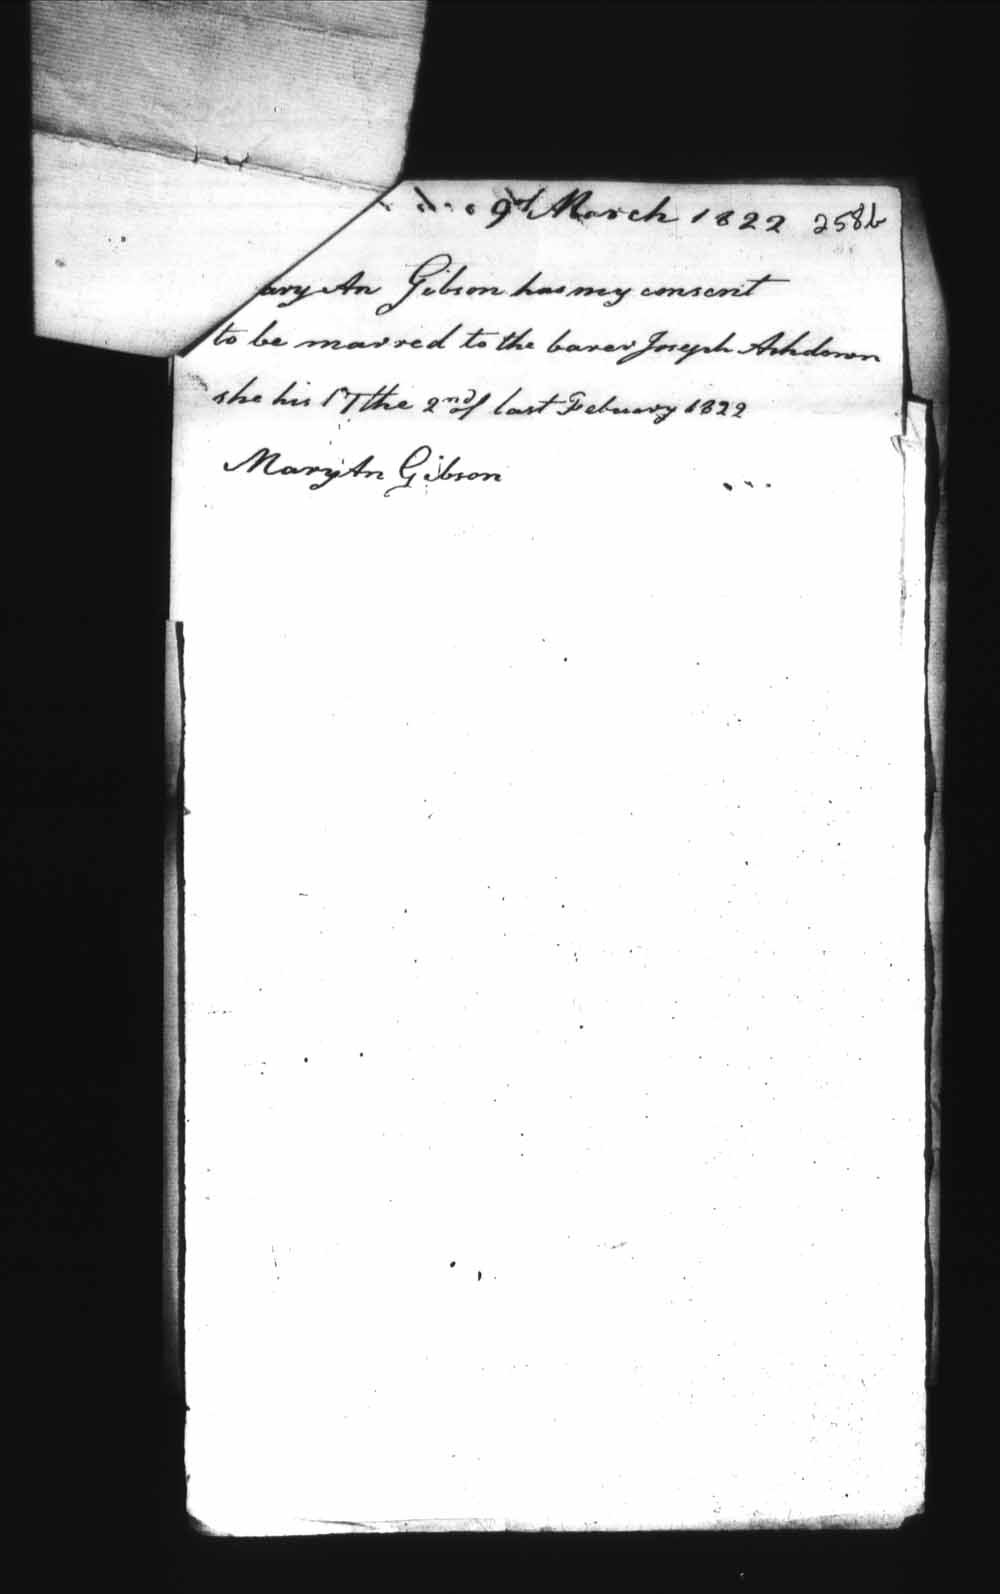 9th March 1822 258b
ary An Gibson has my consent
to be marred to the barer Joseph Ashdown
she his 17 the 2nd of last Febuary 1822
Mary An Gibson